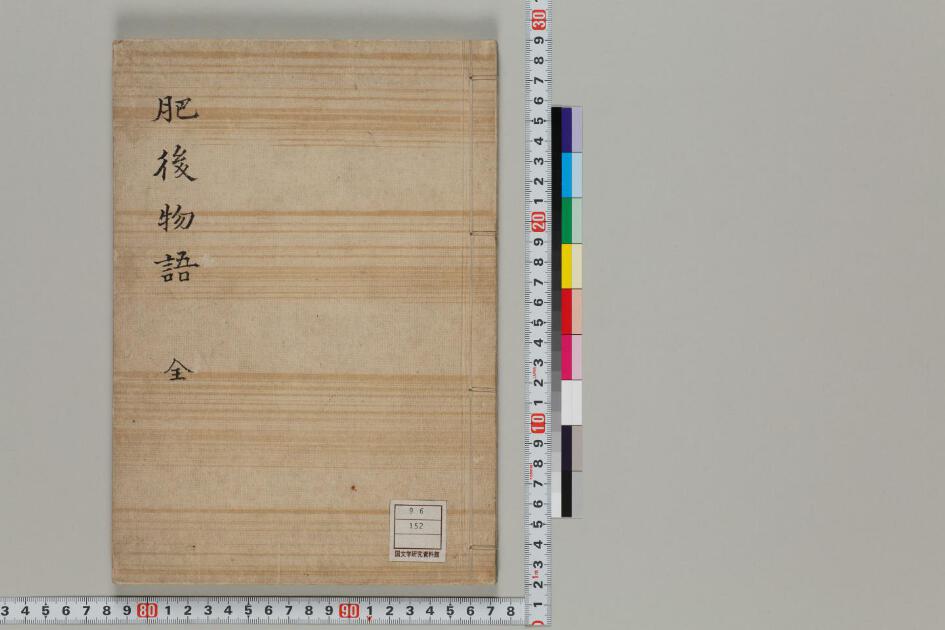 肥後物語 全
96
152
国文学研究資料館
30
9
8
7
6
5
4
3
2
1
20
9
8
7
6
5
4
3
2
1
10
9
8
7
6
5
4
3
2
1
3 4 5 6 7 8 9 80 1 2 3 4 5 6 7 8 9 90 1 2 3 4 5 6 7 8